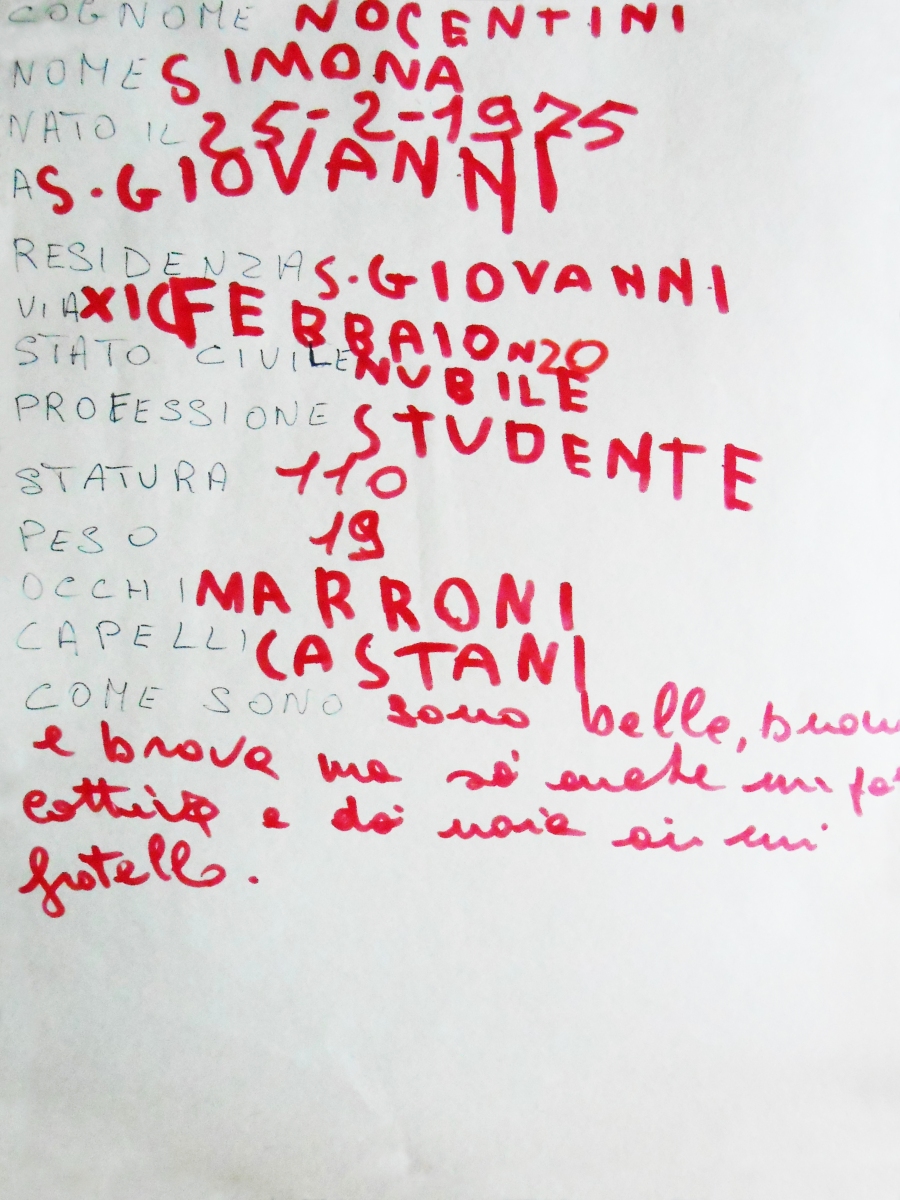 COGNOME NOCENTINI
NOME SIMONA
NATO IL 25-2-1975
A S. GIOVANNI
RESIDENZIA S. GIOVANNI
VIA XI FEBBRAIO N 20
STATO CIVILE NUBILE
PROFESSIONE STUDENTE
STATURA 110
PESO 19
OCCHI MARRONI
CAPELLI CASTANI
COME SONO sono bella,
e brava ma sò anche un pò
cattiva e dò noia ai mi
fratello.